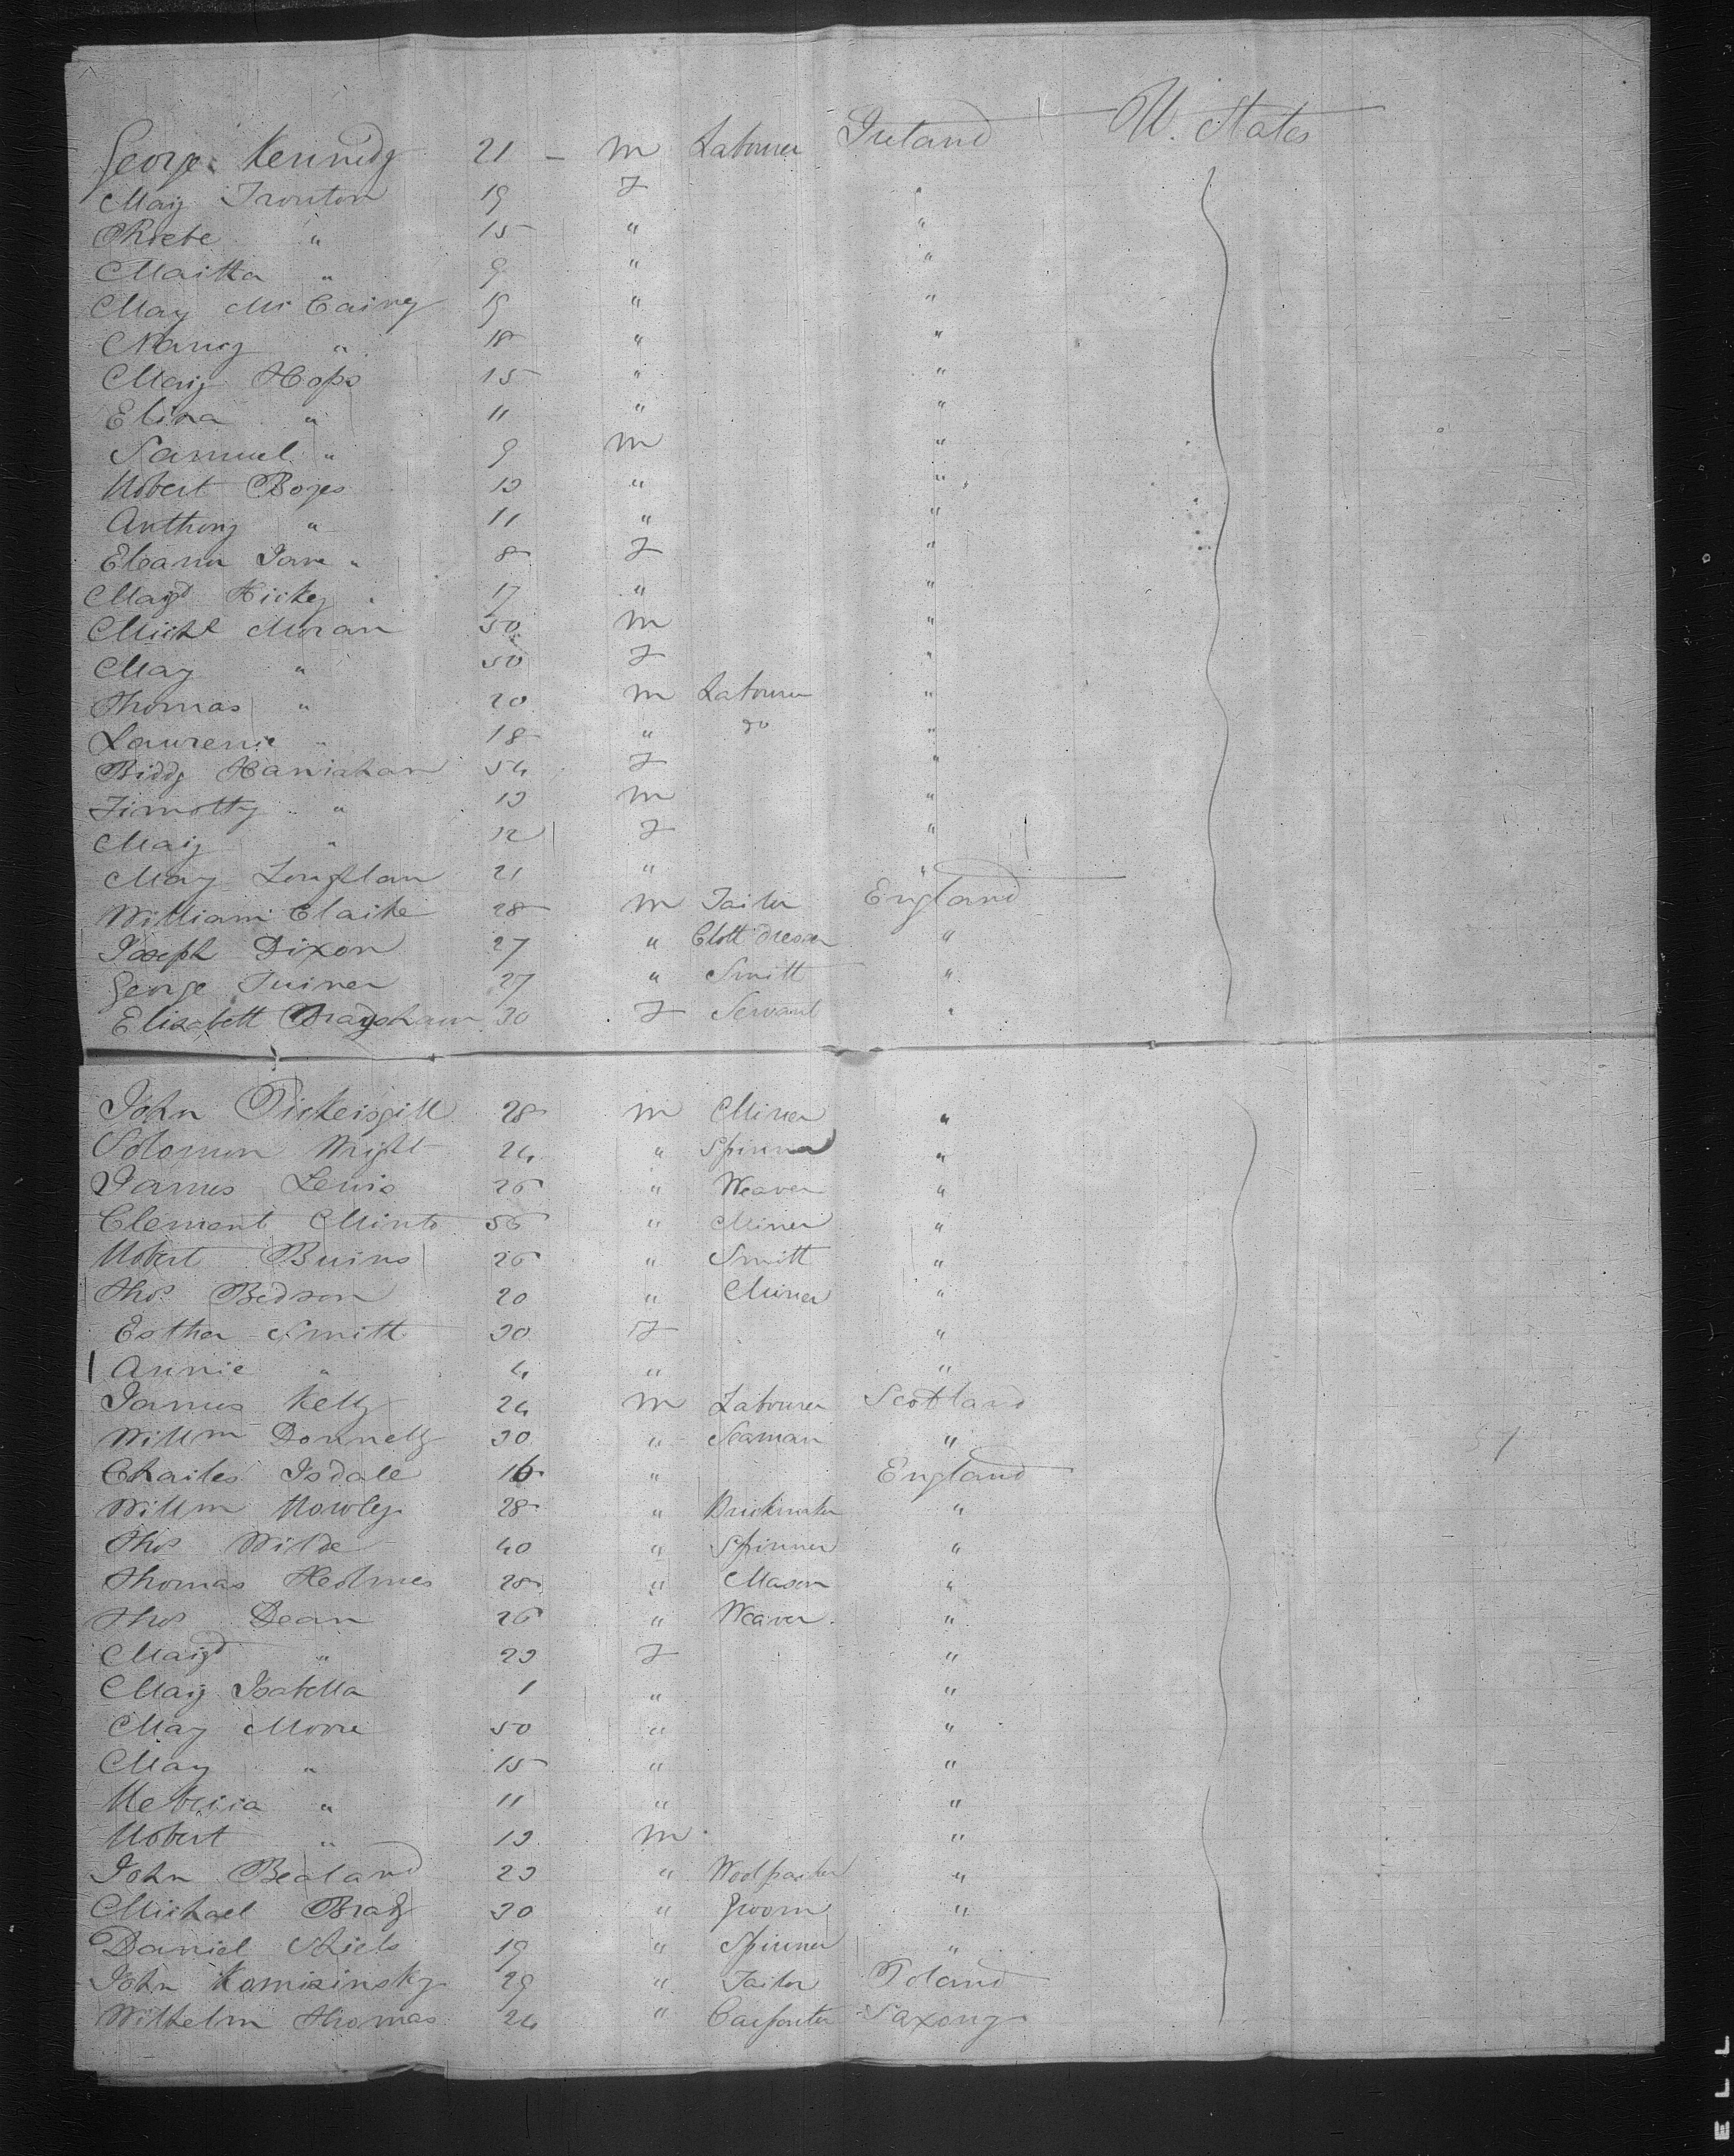 George Kennedy 21 — M Labourer Ireland U. States
Mary Trouton 19 F "
Phoebe " 15 " "
Martha " 9 " "
Mary McCairey 19 " "
Nancy " 18 " "
Mary Hops 15 " "
Eliza " 11 " "
Samuel " 9 M "
Robert Boyes 13 " "
Anthony " 11 " "
Eleanor Jane " 8 F "
Margt Hickey 17 " "
Michl Moran 50 M "
Mary " 50 F "
Thomas " 20 M Labourer "
Laurence " 18 " do "
Biddy Hanrahan 54 F "
Timothy " 13 M "
Mary " 12 F "
Mary Loughlan 21 " "
William Clarke 28 M Tailor England
Joseph Dixon 27 " Cloth Dresser "
George Turner 27 " Smith "
Elizabeth Bradshaw 30 F Servant "
John Pickersgill 28 M Miner "
Solomon Wright 24 " Spinner "
James Lewis 26 " Weaver "
Clement Minto 56 " Miner "
Robert Burns 26 " Smith "
Thos Bedson 20 " Miner "
Esther Smith 30 F "
Annie " 4 " "
James Kelly 24 M Labourer Scotland
Willm Donnelly 30 " Seaman "
Charles Isdale 16 " England
Willm Rowley 28 " Brickmaker "
Thos Wilde 40 " Spinner "
Thomas Holmes 28 " Mason "
Thos Dean 26 " Weaver "
Margt " 23 F "
Mary Isabella 1 " "
Mary Moore 50 " "
Mary " 15 " "
Rebecca " 11 " "
Robert " 13 M "
John Bealand 23 " Woolpacker "
Michael Brady 30 " Groom "
Daniel Shiels 19 " Spinner "
John Komisinsky 29 " Tailor Poland
Wilhelm Thomas 24 " Carpenter Saxony
ELL